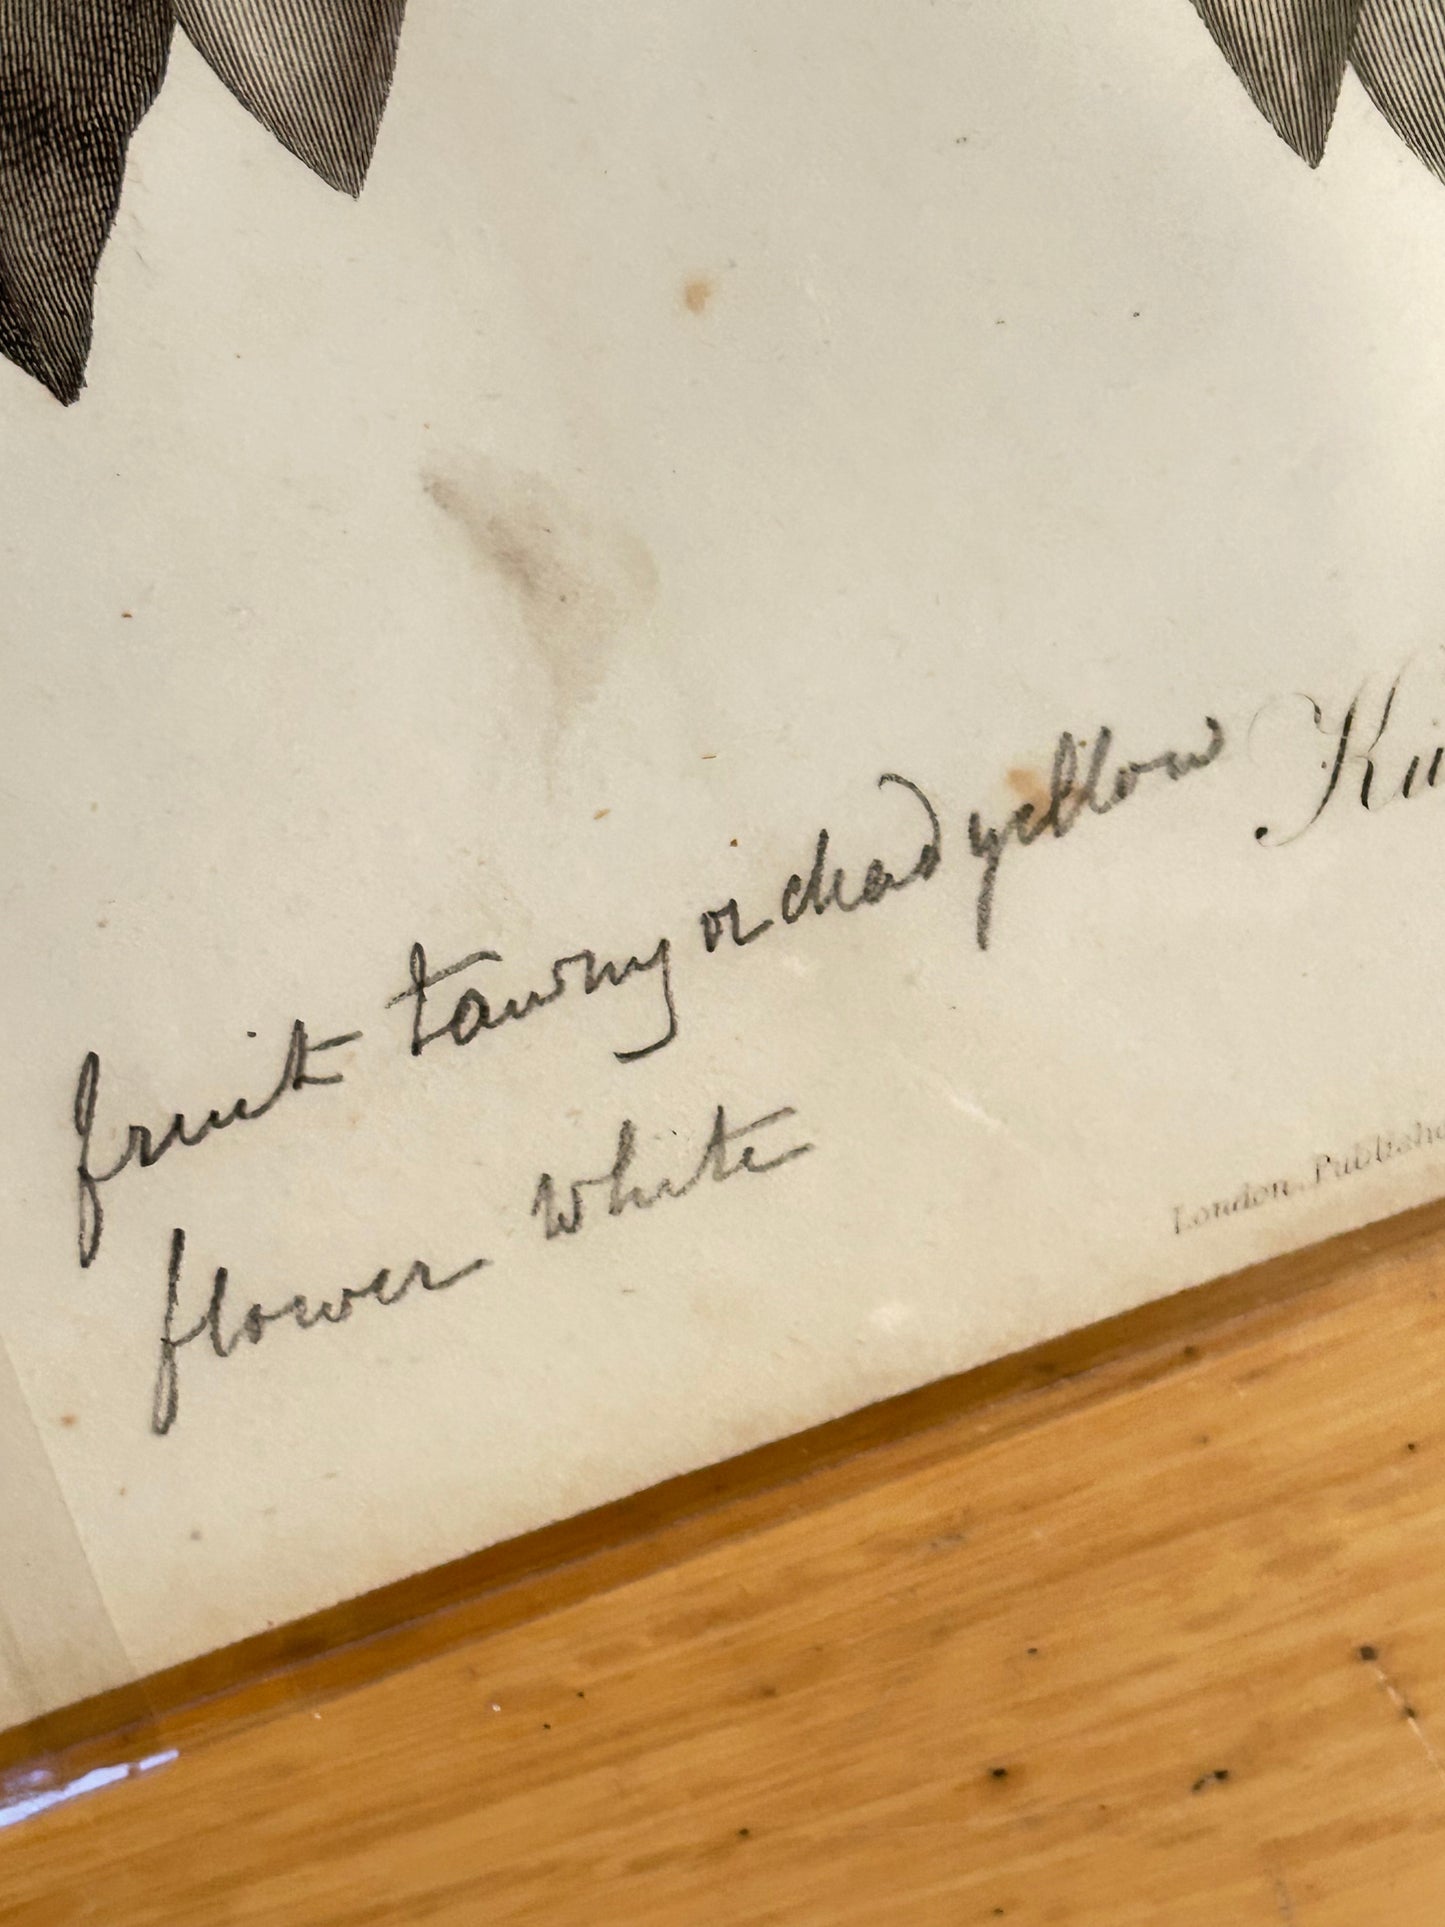 fruit tawny or dead yellow
flower white
London, Publishe